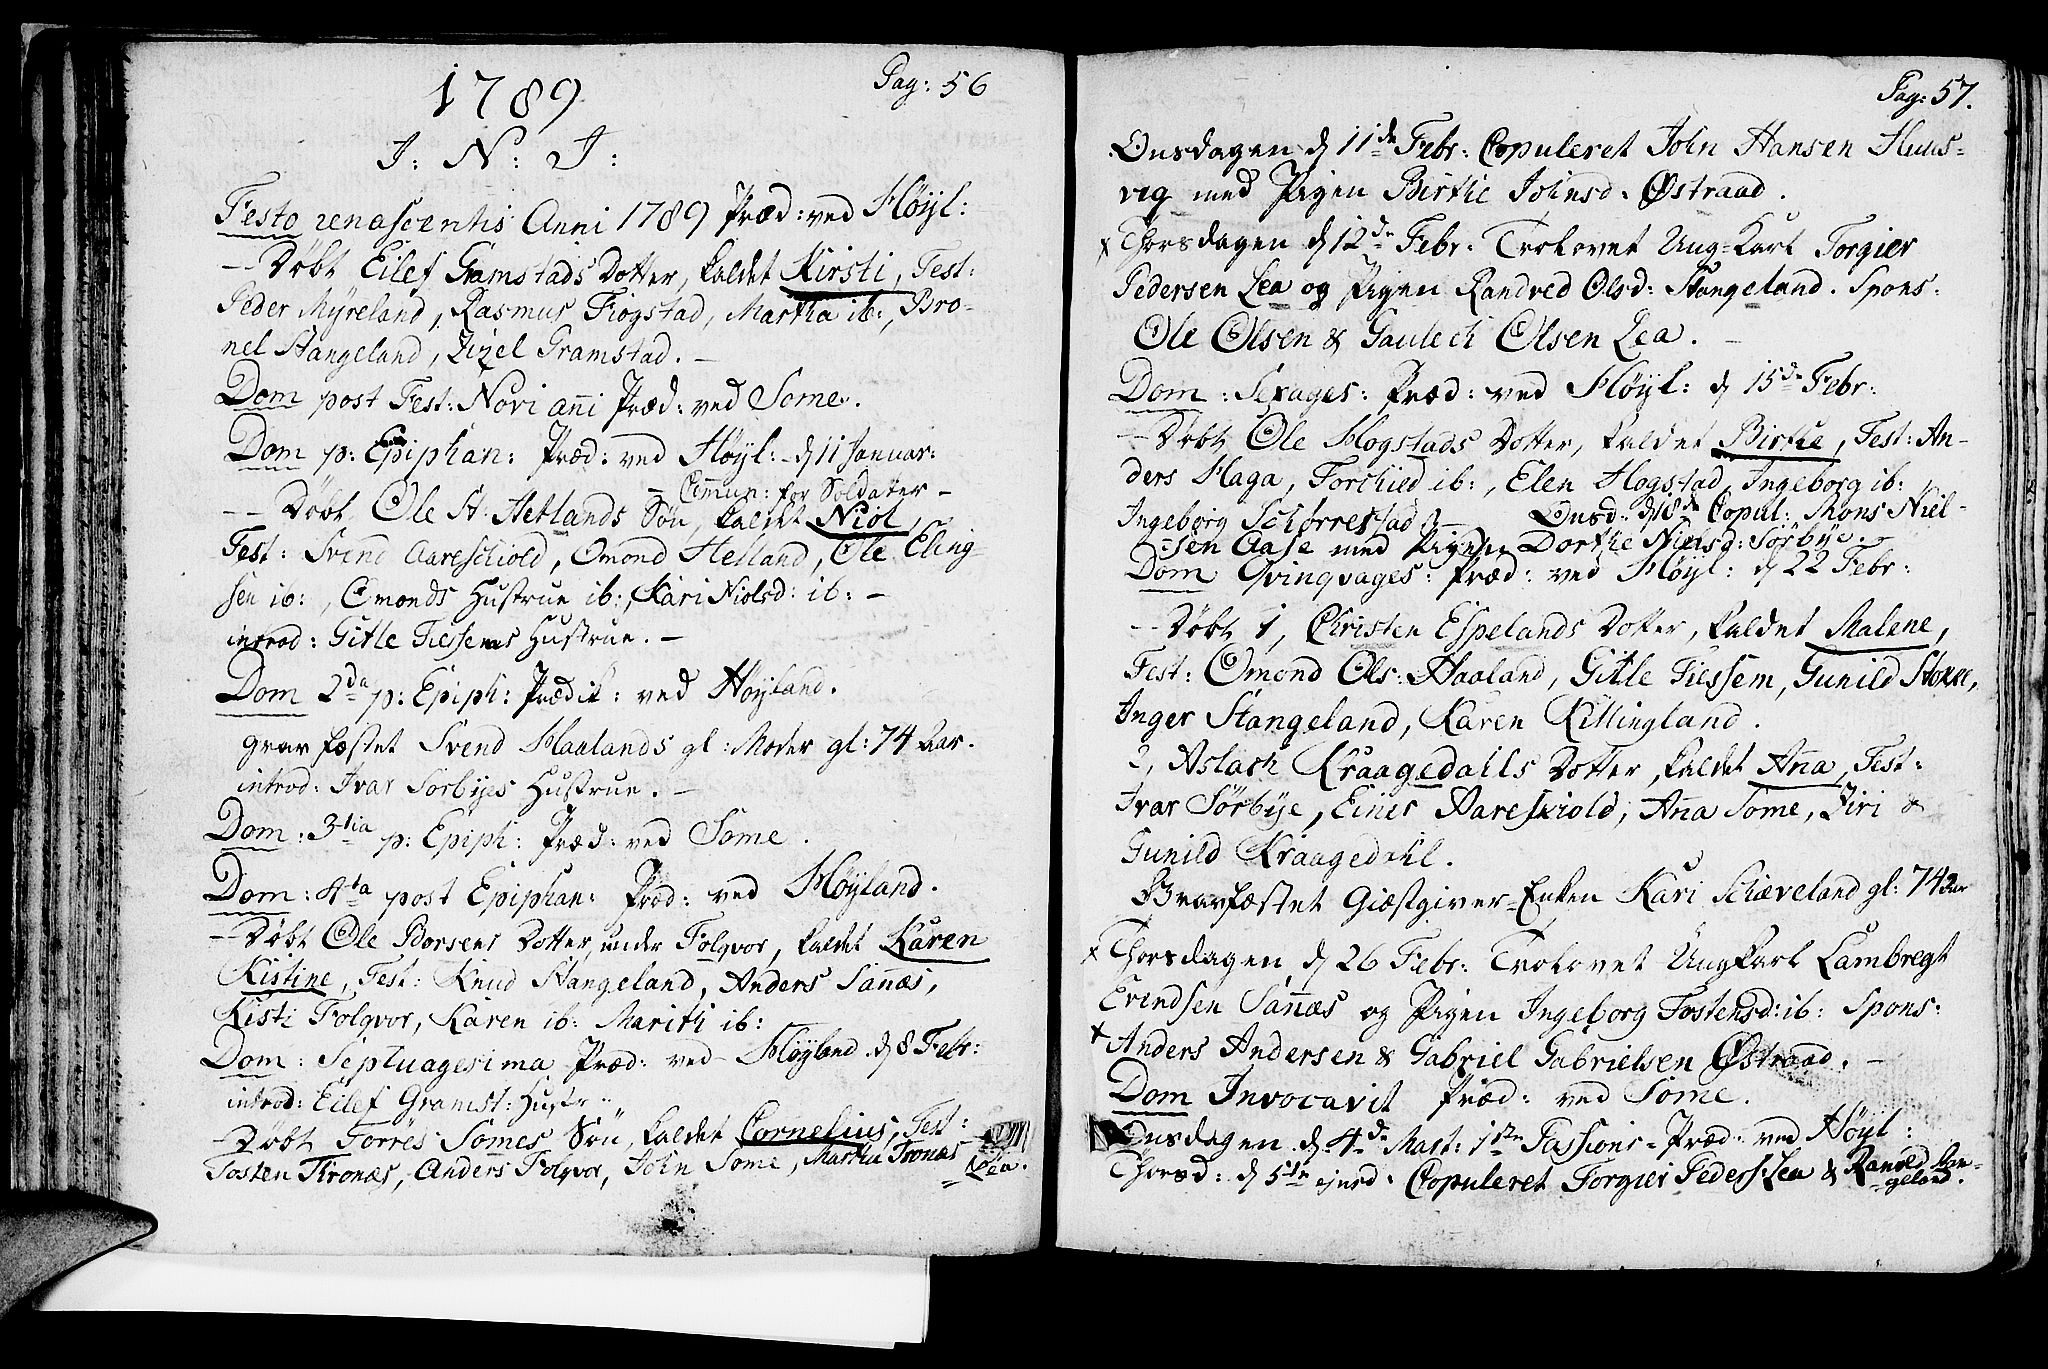 Pag: 56
1789
J: N: J:
Festo renascentis Anni 1789 Præd: ved Høyl:
-- Døbt Eilef Gramstads Dotter, kaldet Kirsti, Test:
Peder Myreland, Rasmus Fiogstad, Martha ib:, Bro-
nel Stangeland, Zizel Gramstad. -
Dom post Fest: Novi anni Præd: ved Some.
Dom p: Epiphan: Præd: ved Høyl: d 11 Januar:
- Com̅un: for Soldater -
-- Døbt Ole St. Hetlands Søn, kaldet Niol,
Test: Svend Aareschiold, Omond Hetland, Ole Eling-
sen ib:, Omonds Hustrue ib:, Kari Niolsd: ib: -
introd: Gitle Fiessems Hustrue. -
Dom 2da p: Epiph: Prædik: ved Høyland.
Gravfæstet Svend Haalands gl: Moder gl: 74 Aar.
introd: Ivar Sørbyes Hustrue. -
Dom: 3tia p: Epiph: Præd: ved Some.
Dom: 4ta post Epiphan: Præd: ved Høyland.
-- Døbt Ole Borsens Dotter, under Folqvor, kaldet Karen
Kistine, Test: Knud Stangeland, Anders San̅æs,
Kisti Folqvor, Karen ib: Mariti ib:
Dom: Septuagesima Præd: ved Høyland d 8 Febr:
introd: Eilef Gramst: Hustr:
- Døbt Torres Somes Søn, kaldet Cornelius, Test:
Tosten Tronæs, Anders Folqvor, John Some, Martha Tronæs
Lea.
Pag: 57.
Onsdagen d 11de Febr: Copuleret John Hansen Huus-
vig med Pigen Birthe Johnsd. Østraad.
x Thorsdagen d 12de Febr: Trolovet Ung-Karl Torgier
Pedersen Lea og Pigen Randved Olsd: Stangeland. Spons:
Ole Olsen & Gaulech Olsen Lea. -
Dom: Sexages: Præd: ved Høyl: d 15de Febr:
-- Døbt Ole Hogstads Dotter, kaldet Birthe, Test: An-
ders Haga, Torchild ib:, Elen Hogstad, Ingeborg ib:
Ingeborg Schorrestad. - Onsd: d 18de Copul: Mons Niel-
sen Aase med Pigen Dorthe Nielsd: Sörbye.
Dom Qvinqvages: Præd: ved Høyl: d 22 Febr:
-- Døbt 1, Christen Espelands Dotter, kaldet Malene,
Test: Omond Ols: Haaland, Gitle Fiessem, Gunild Stokke,
Inger Stangeland, Karen Killingland.
2, Aslach Kraagedahls Dotter, kaldet An̅a, Test:
Ivar Sörbye, Einer Aareskiold, An̅a Some, Ziri &
Gunild Kraagedahl.
Gravfæstet Giæstgiver-Enken Kari Schæveland gl: 74 Aar
x Thorsdagen d 26 Febr: Trolovet Ungkarl Lambregt
Evendsen San̅æs og Pigen Ingeborg Tostensd: ib: Spons:
x Anders Andersen & Gabriel Gabrielsen Østraad. -
Dom Invocavit Præd: ved Some.
Onsdagen d: 4de Mart: 1ste Passions-Præd: ved Høyl:
Thorsd: d 5te ejusd. Copuleret Torgier Peders: Lea & Ranvld Stan-
geland.